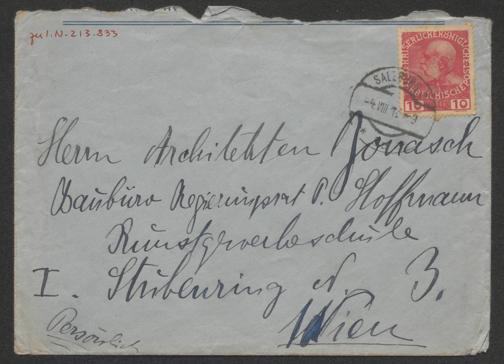 zu I.N. 213.833
KAISERLICHE KÖNIGLICHE
ÖSTERREICHISCHE POST
10 10
SALZBURG
-4.VIII.1
Herrn Architekten Jonasch
Baubüro Regierungsrat P. Hoffmann
Kunstgewerbeschule
I. Stubenring N. 3.
Wien
Persönlich